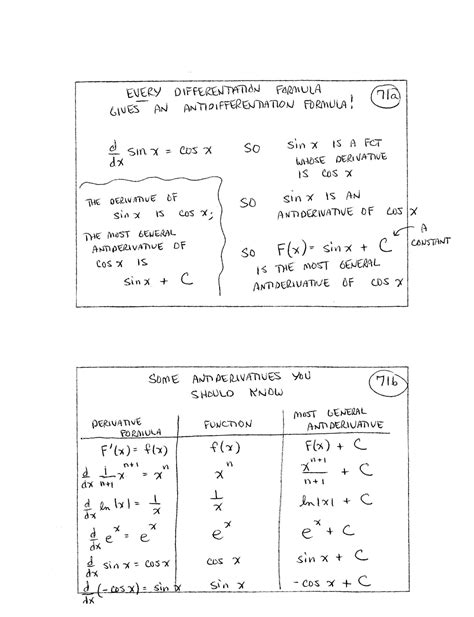 EVERY DIFFERENTIATION FORMULA
GIVES AN ANTIDIFFERENTIATION FORMULA!
71a
d/dx sin x = cos x SO sin x IS A FCT
WHOSE DERIVATIVE
IS cos x
THE DERIVATIVE OF
sin x IS cos x;
THE MOST GENERAL
ANTIDERIVATIVE OF
cos x IS
sin x + C
SO sin x IS AN
ANTIDERIVATIVE OF cos x
SO F(x) = sin x + C
A
CONSTANT
IS THE MOST GENERAL
ANTIDERIVATIVE OF cos x
SOME ANTIDERIVATIVES YOU
SHOULD KNOW
71b
DERIVATIVE
FORMULA
FUNCTION
MOST GENERAL
ANTIDERIVATIVE
F'(x) = f(x) f(x) F(x) + C
d/dx 1/(n+1) x^(n+1) = x^n x^n x^(n+1)/(n+1) + C
d/dx ln|x| = 1/x 1/x ln|x| + C
d/dx e^x = e^x e^x e^x + C
d/dx sin x = cos x cos x sin x + C
d/dx (-cos x) = sin x sin x -cos x + C